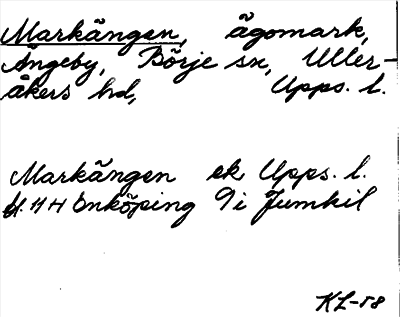 Markängen, ägomark,
Ängeby, Börje sn, Uller-
åkers hd, Upps. l.
Markängen ek Upps. l.
11 HH Enköping 9i Jumkil
KL-58